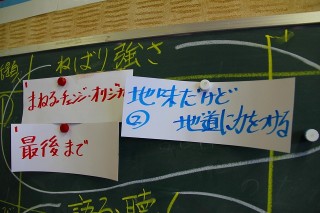 ねばり強さ
まねる・チェンジ・オリジナ
地味だけど
②
地道に力をつける
最後まで
語る、聴